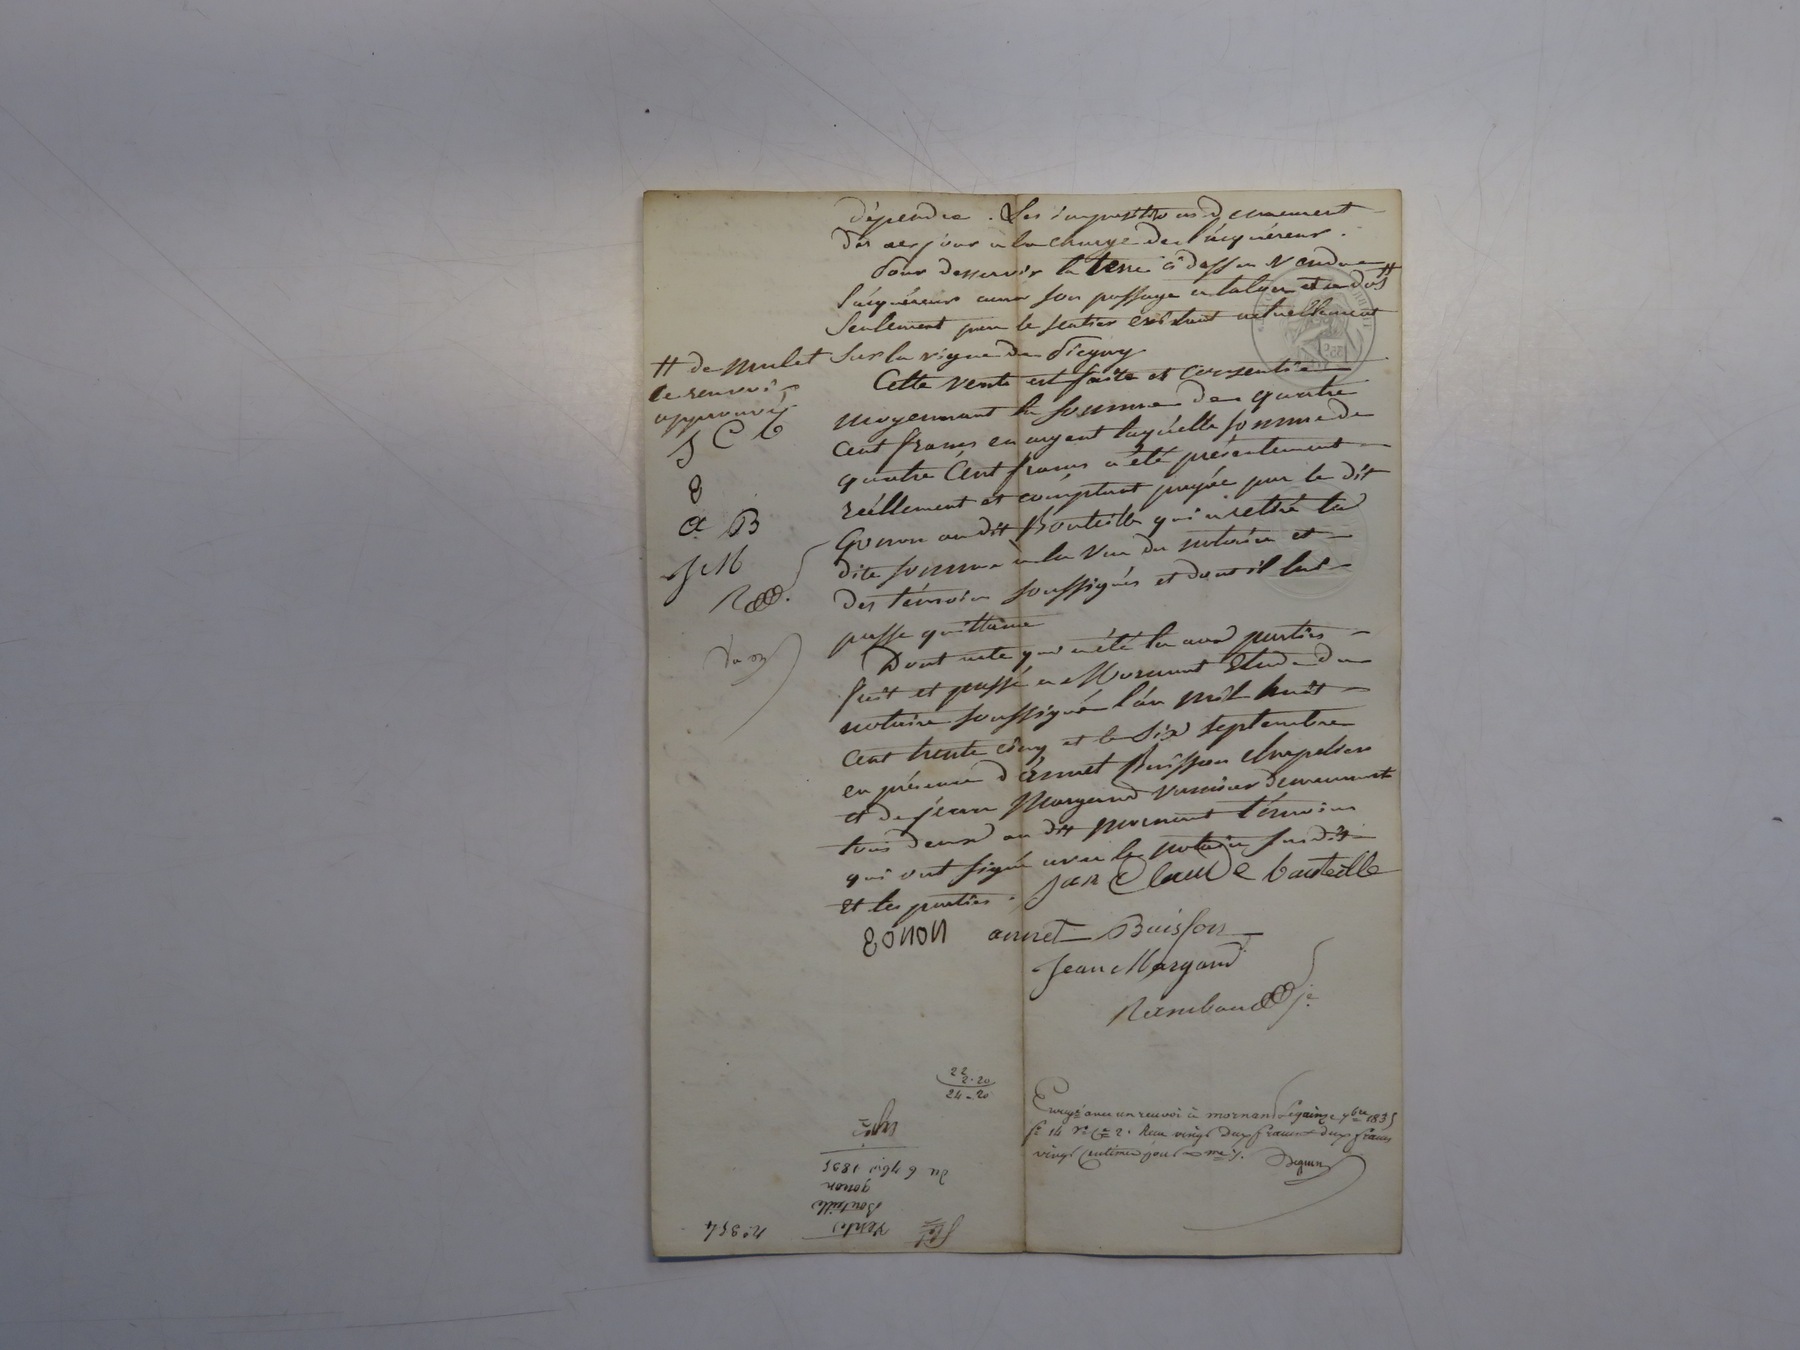 dépendre. Les impositions demeurent
dès ce jour a la charge de l'acquéreur.
Pour desservir la terre ci dessus vendue
l'acquéreur aura son passage a talon et a dos #
seulement par le sentier existant actuellement
sur la vigne de
# de mulet
le renvoi
approuvé
J C b
g
a B
J M
R
Cette vente est faite et consentie
moyennant la somme de quatre
cent francs en argent laquelle somme de
quatre cent francs a été présentement
réellement et comptant payée par le dit
Gonon au dit Bouteille qui a retiré la
dite somme a la vue du notaire et
des témoins soussignés et dont il lui
passe quittance
Dont acte qui a été lu aux parties
fait et passé a Mornant Etude du
notaire soussigné l'an mil huit
cent trente cinq et le six septembre
en présence d'annet Buisson chapelier
et de jean Margand demeurant
tous deux au dit Mornant témoins
qui ont signé avec le notaire susdit
et les parties.
jan Claude bouteille
gonon annet Buisson
Jean Margand
Rambaud je
22
2.20
24.20
Enregé avec un renvoi à mornand le 7bre 1835
fo 14 Vo Ce 2. Reçu vingt deux francs et deux francs
vingt centimes pour
No 354
Vente
Bouteille
gonon
du 6 7bre 1835